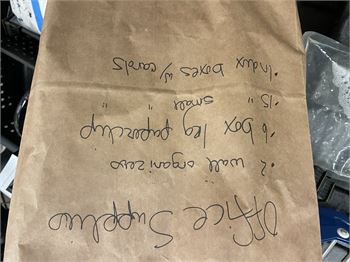 Office Supplies
• 2 wall organizers
• 6 box leg paperclip
• 15 " small "
• Index boxes w/ cards